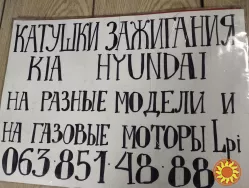 КАТУШКИ ЗАЖИГАНИЯ
KIA HYUNDAI
НА РАЗНЫЕ МОДЕЛИ И
НА ГАЗОВЫЕ МОТОРЫ Lpi
063·851·48·88